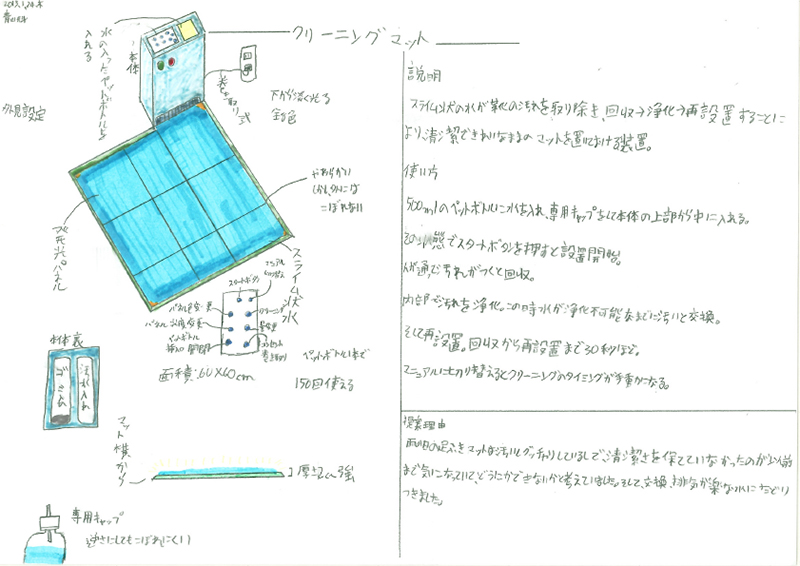 クリーニングマット
水の入ったペットボトルを
入れる
本体
巻き取り式
下から淡く光る
金色
外見設定
やわらかい
しかし、外にこぼ
こぼれない
発光パネル
スライム状水
スタートボタン
マニュアル
切り替え
パネル色変更
クリーニング
ペットボトル
面積:60×60cm
ペットボトル1本で
150回使える
本体裏
ゴミ入れ
汚水入れ
マット横から
厚さ2cm強
専用キャップ
逆さにしてもこぼれにくい!
説明
スライム状の水が靴の汚れを取り除き、回収→浄化→再設置することに
より、清潔できれいなままのマットを置いておける装置。
使い方
500mlのペットボトルに水を入れ、専用キャップをして本体の上部から中に入れる。
その状態でスタートボタンを押すと設置開始。
人が通って汚れがつくと回収。
内部で汚れを浄化。この時水が浄化不可能なまでに汚いと交換。
そして再設置。回収から再設置まで30秒ほど。
マニュアルに切り替えるとクリーニングのタイミングが手動になる。
提案理由
雨の日の足ふきマットは汚いしグッチョリしているしで清潔さを保てていなかったのが以前
まで気になっていて、どうにかできないかと考えていました。そして、交換、排気が楽な水にたどり
つきました。